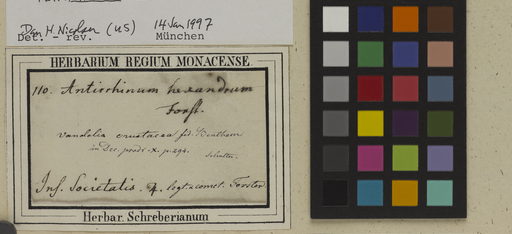 Dan H. Nicolson (US) 14 Jan 1997
Det. - rev. München
HERBARIUM REGIUM MONACENSE
110. Antirrhinum hexandrum
Forst.
Vandelia crustacea fid. Bentham
in Dec. prodr. X. p. 294.
Schultes.
Ins. Societatis. legt & comst. Forster
Herbar. Schreberianum